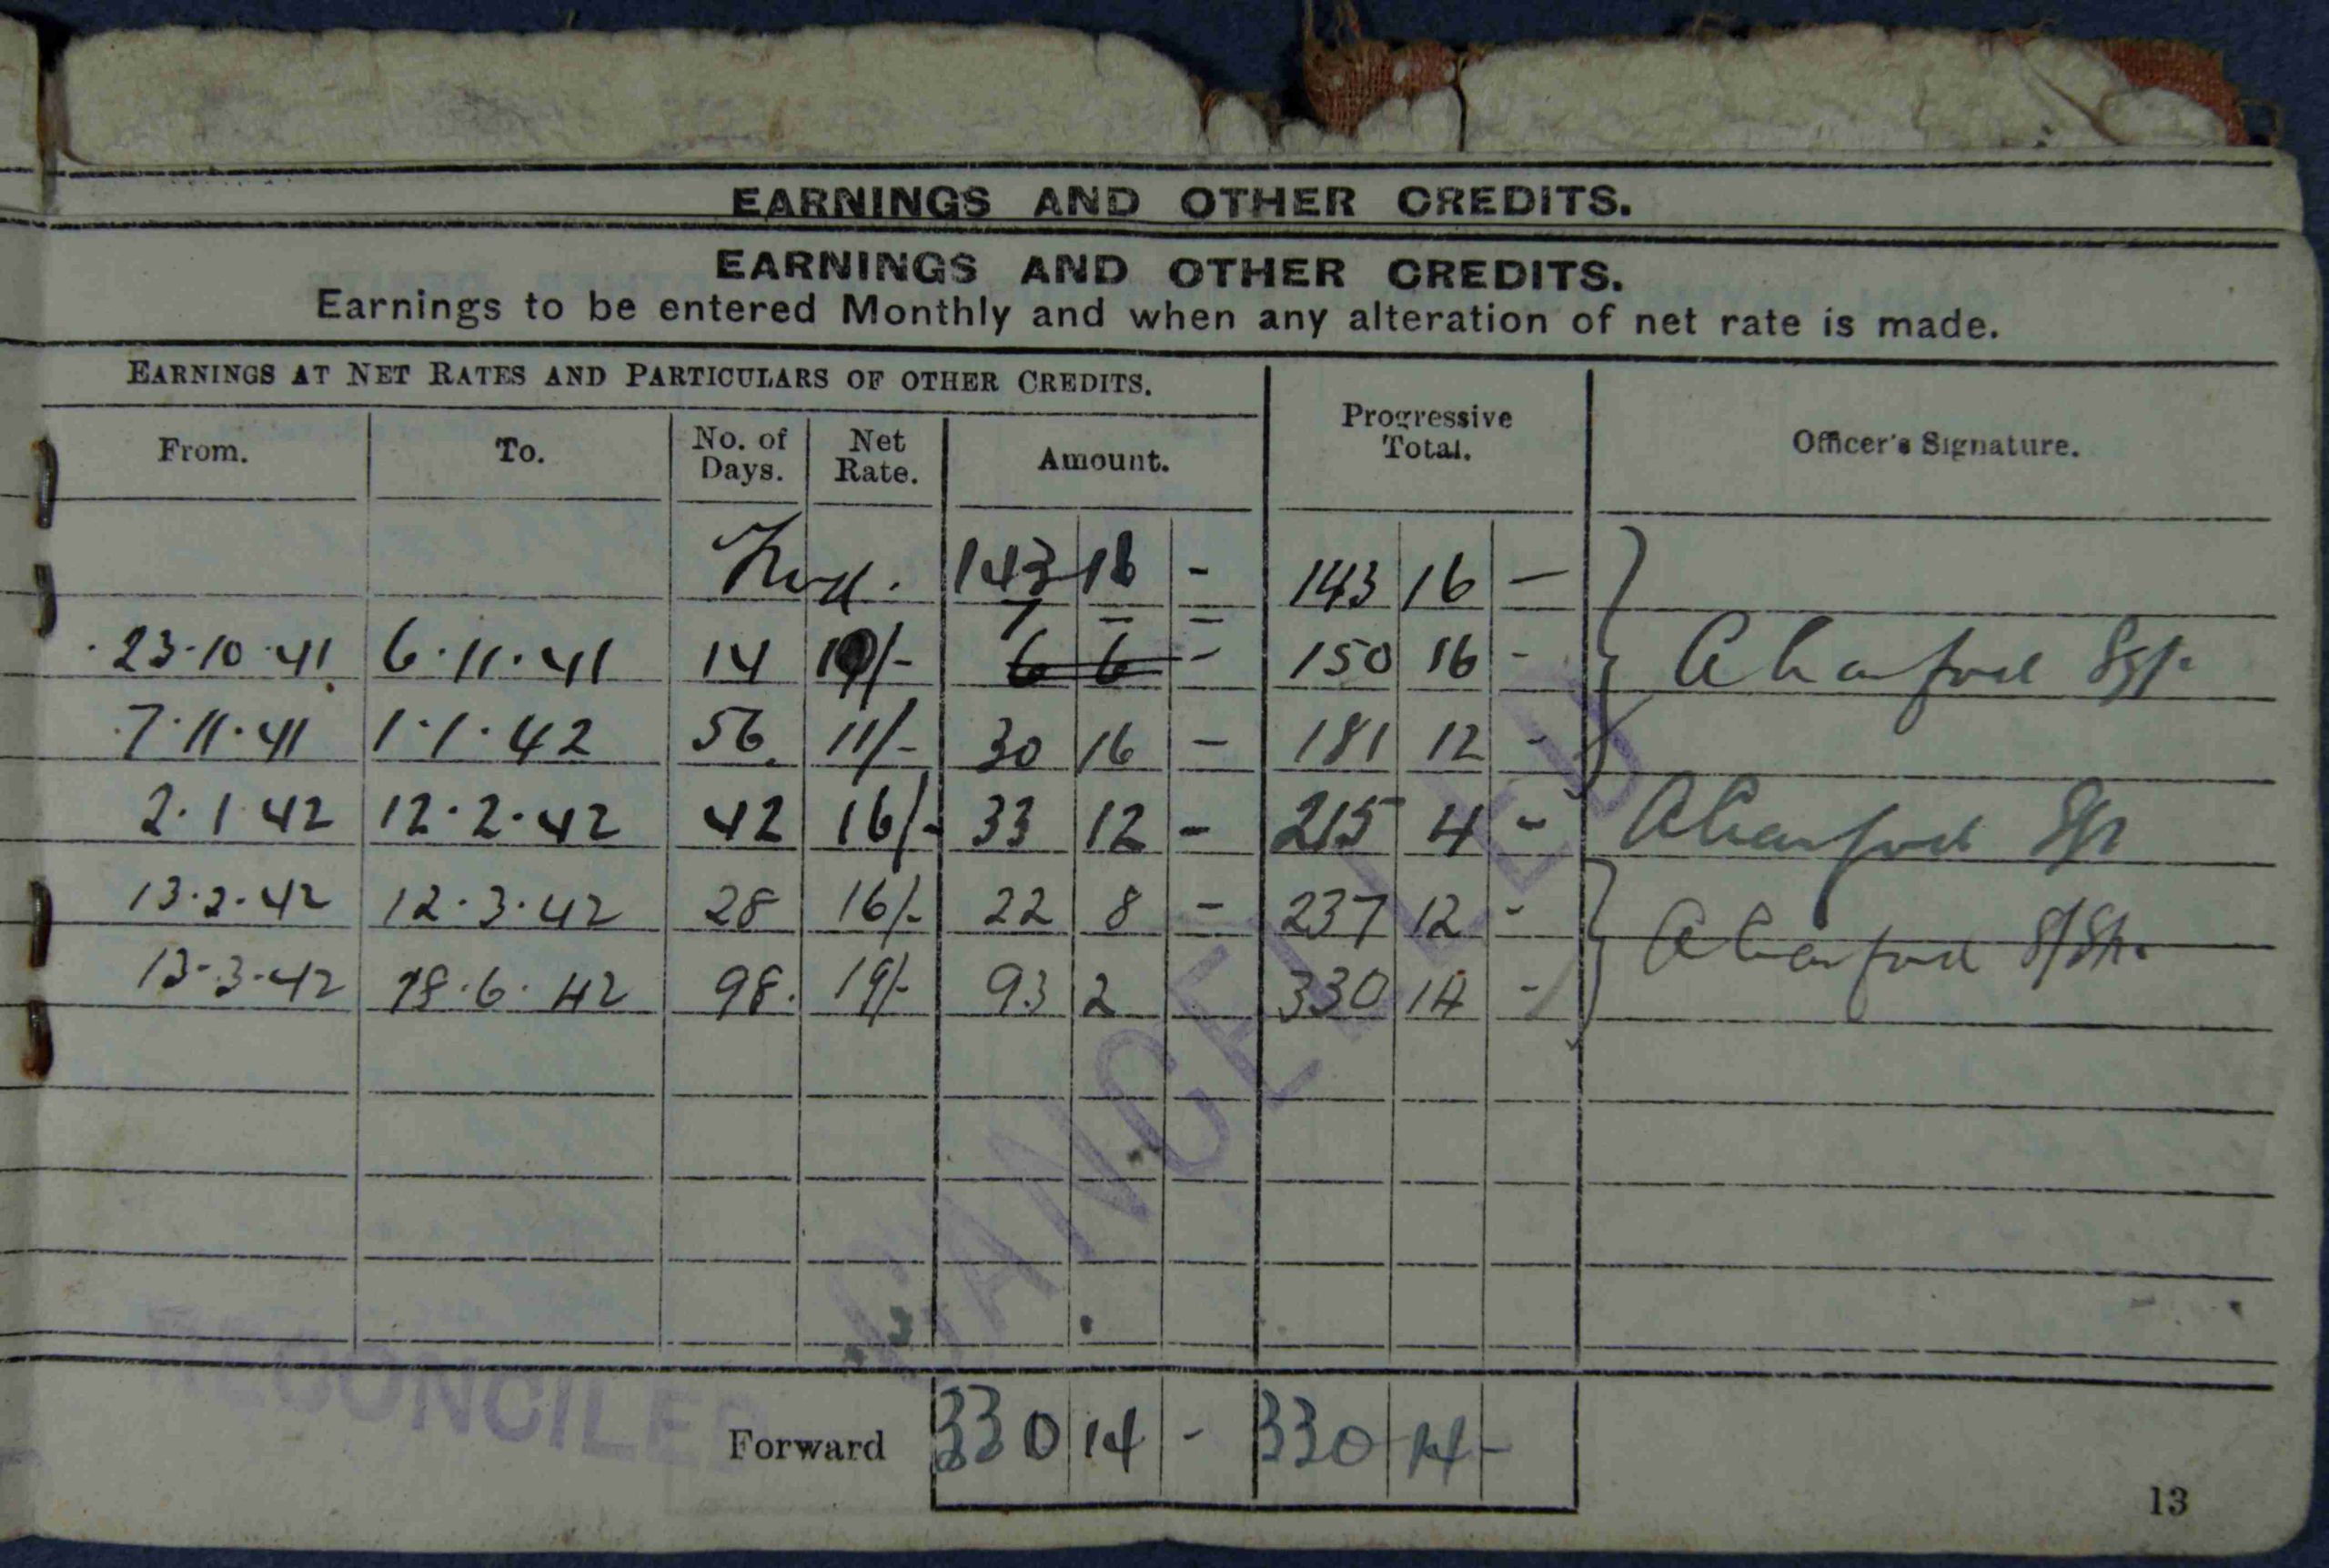 EARNINGS AND OTHER CREDITS.
EARNINGS AND OTHER CREDITS.
Earnings to be entered Monthly and when any alteration of net rate is made.
EARNINGS AT NET RATES AND PARTICULARS OF OTHER CREDITS.
Progressive Total.
Officer's Signature.
From. To. No. of Days. Net Rate. Amount.
143 16 - 143 16 -
7 - -
23.10.41 6.11.41 14 10/- 6 6 - 150 16 -
7.11.41 1.1.42 56. 11/- 30 16 - 181 12 -
2.1.42 12.2.42 42 16/- 33 12 - 215 4 -
13.2.42 12.3.42 28 16/- 22 8 - 237 12 -
13.3.42 18.6.42 98. 19/- 93 2 330 14 -
CANCELLED
RECONCILED
Forward 330 14 - 330 14 -
13